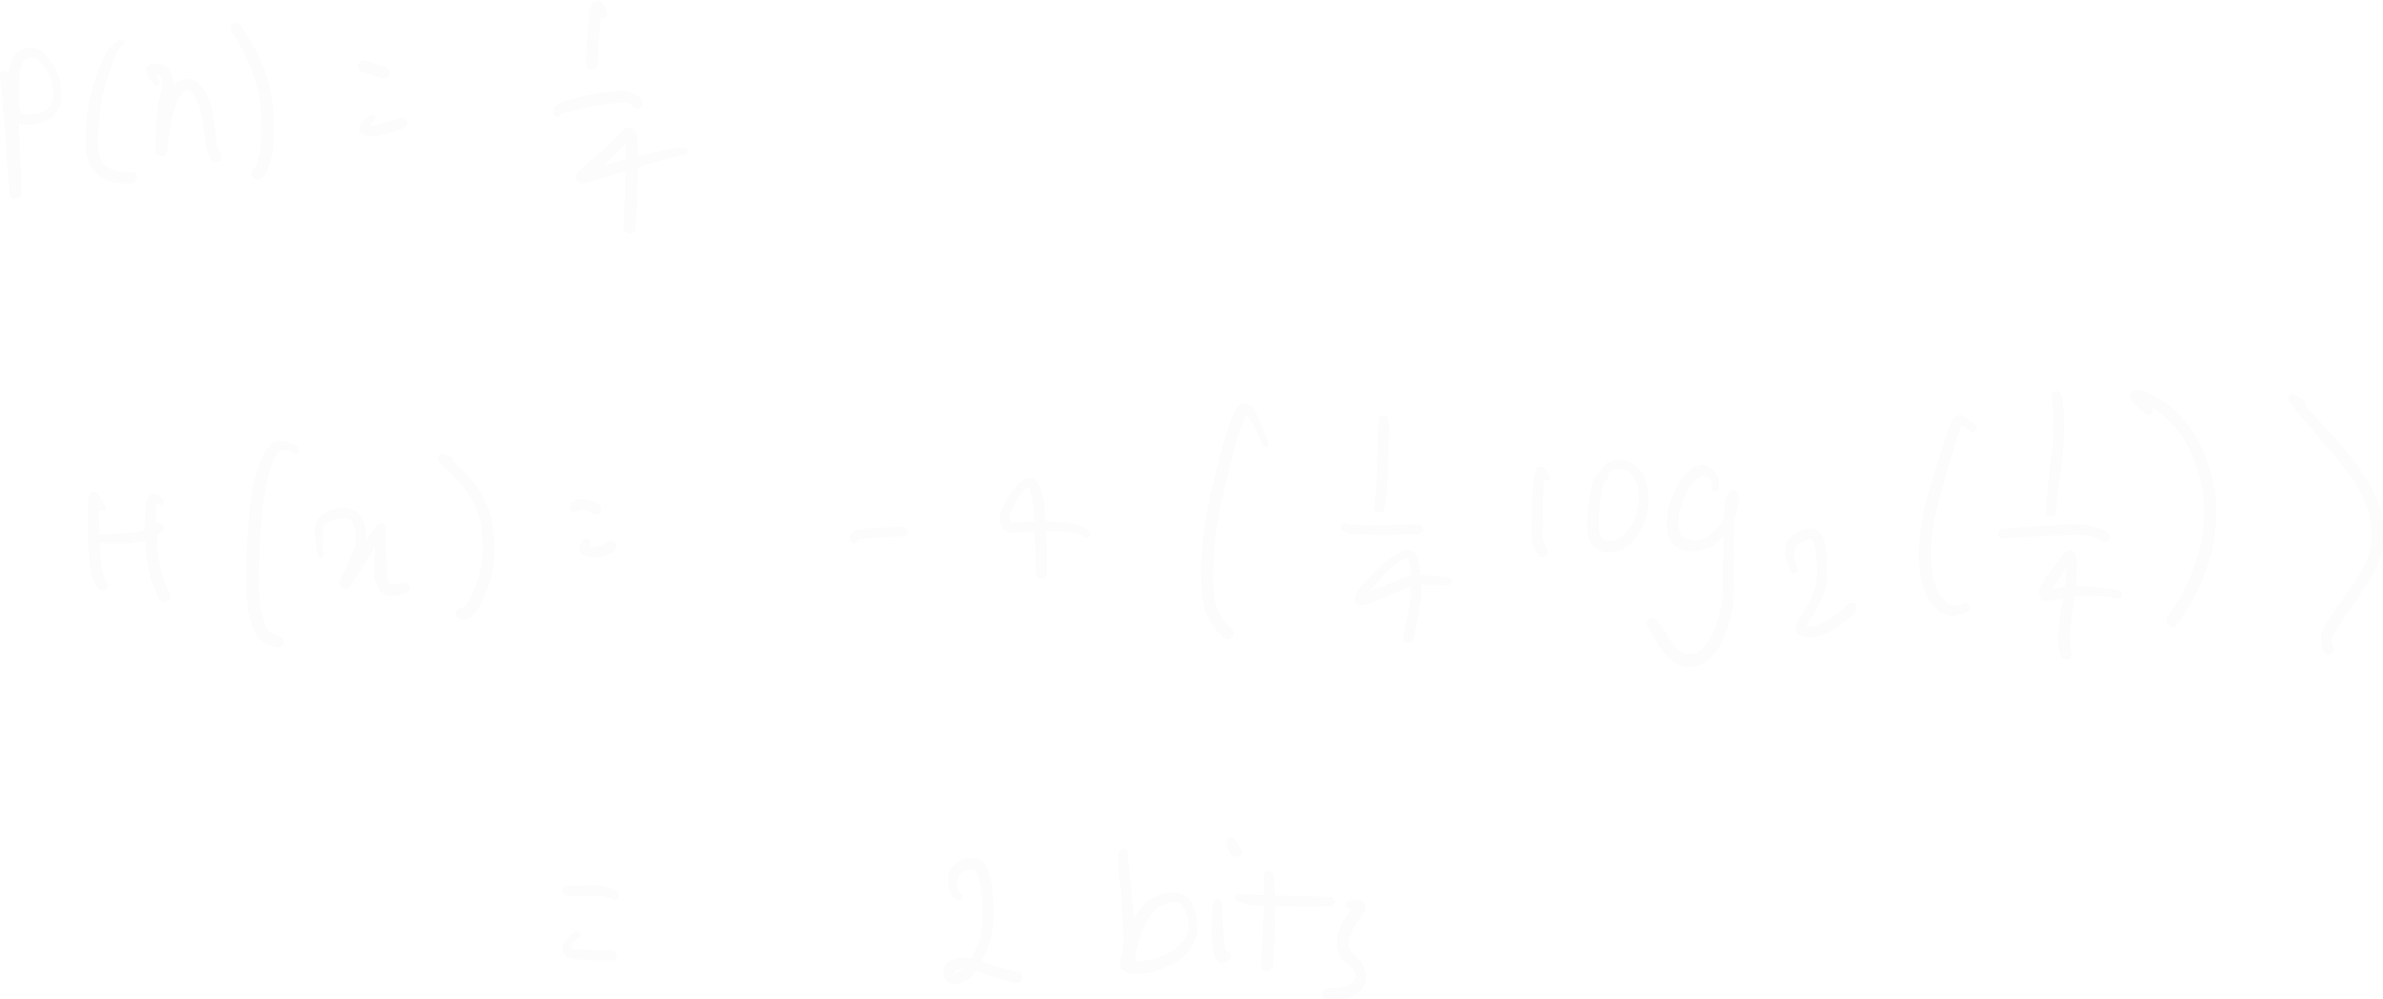 P(n) = 1/4
H(x) = - 4 ( 1/4 log₂ ( 1/4 ) )
= 2 bits